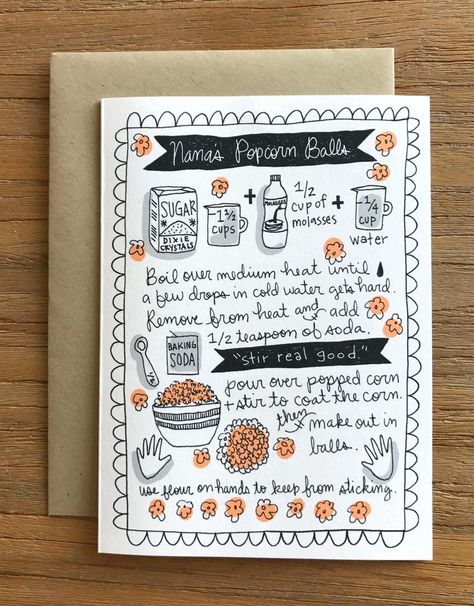 Nana's Popcorn Balls
SUGAR
DIXIE
CRYSTALS
1 1/2
CUPS
+
MOLASSES
1/2
cup of
molasses
+
1/4
CUP
water
Boil over medium heat until
a few drops in cold water gets hard.
Remove from heat and add
1/2 teaspoon of soda.
1/2
BAKING
SODA
"stir real good."
pour over popped corn
+ stir to coat the corn.
then make out in
balls.
use flour on hands to keep from sticking.